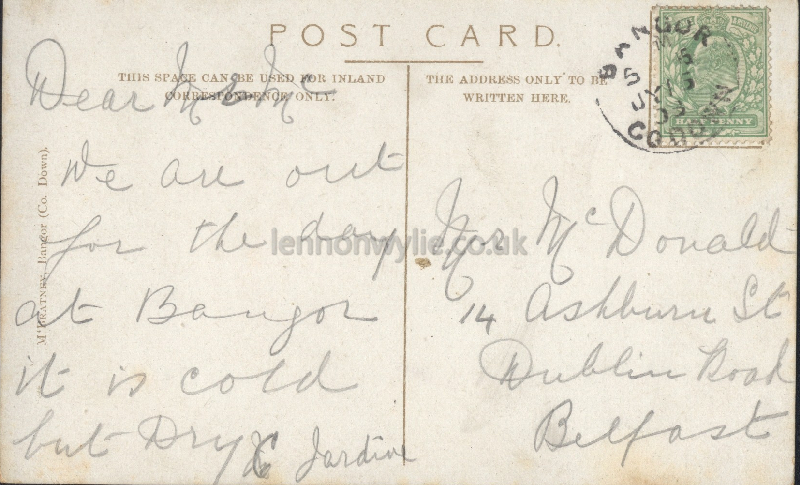 POST CARD.
THIS SPACE CAN BE USED FOR INLAND
CORRESPONDENCE ONLY.
THE ADDRESS ONLY TO BE
WRITTEN HERE.
BANGOR
CO DOWN
HALFPENNY
Dear M & Mc
We are out
for the day
at Bangor
it is cold
but Dry
Jardine
M'BRATNEY, Bangor (Co. Down).
lennonwylie.co.uk
Mr McDonald
14 Ashburn St
Dublin Road
Belfast